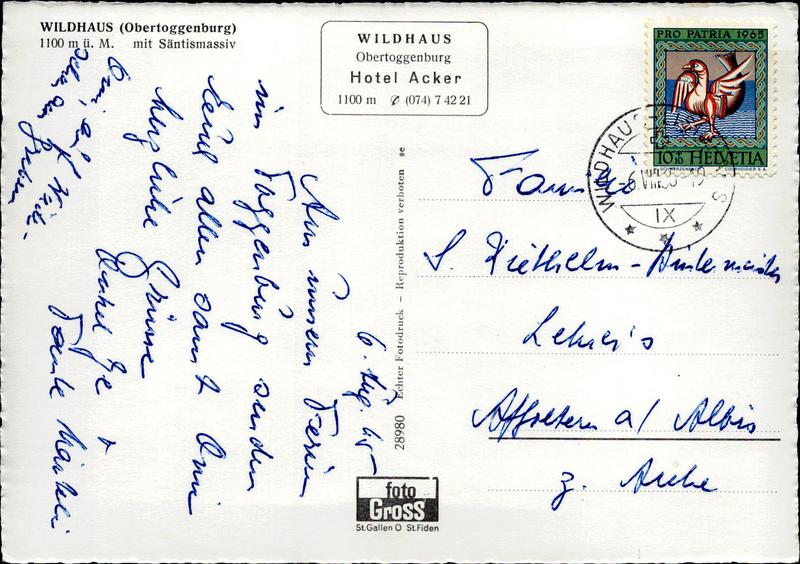 WILDHAUS (Obertoggenburg)
1100 m ü. M. mit Säntismassiv
WILDHAUS
Obertoggenburg
Hotel Acker
1100 m ✆ (074) 7 42 21
PRO PATRIA 1965
10+10 HELVETIA
COURVOISIER S.A.
WILDHAUS
IX
6. Aug. 65
Aus unsern Ferien
im Toggenburg senden
Euch allen samt Omi
herzliche Grüsse
Onkel
Tante
Familie
S. Diethelm-
Lehrer's
Affoltern a/ Albis
z. Arche
28980 Echter Fotodruck - Reproduktion verboten se
foto
Gross
St.Gallen O St.Fiden